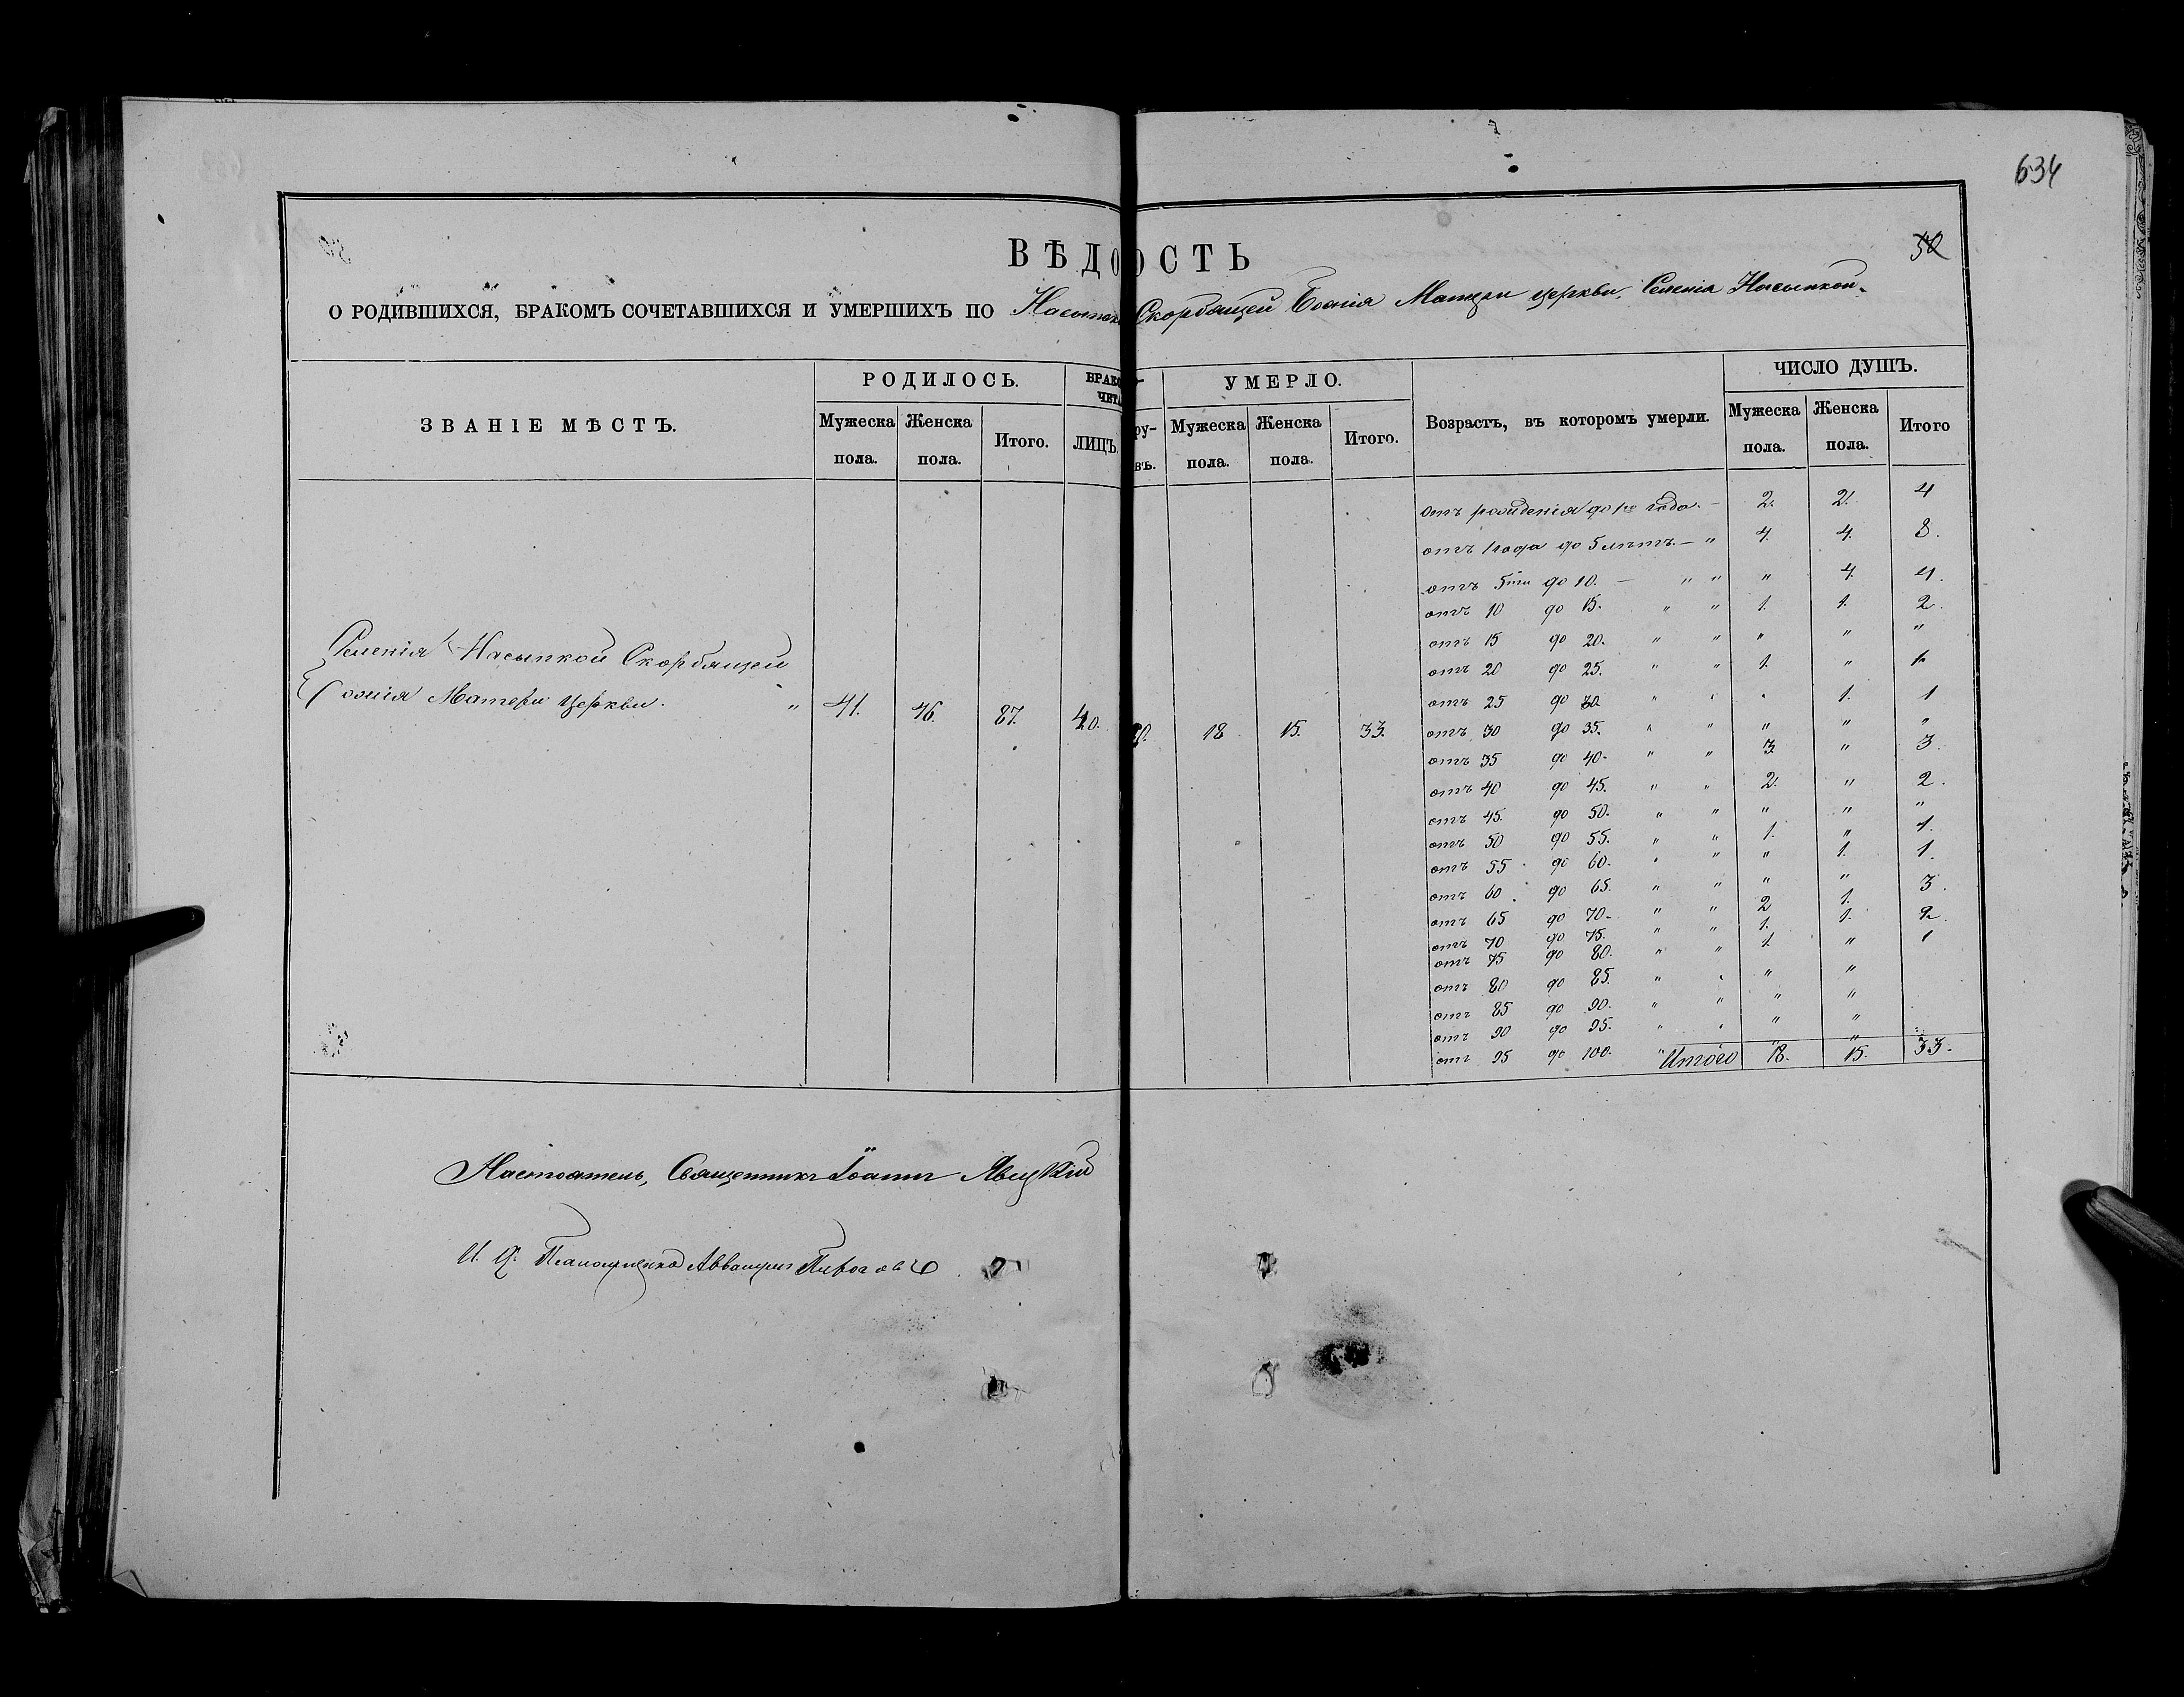 634
50
ВѢДО ОСТЬ
О РОДИВШИХСЯ, БРАКОМЪ СОЧЕТАВШИХСЯ И УМЕРШИХЪ ПО Насыпк Скорбящей Божія Матери церкви, Селенія Насыпкой
ЗВАНІЕ МѢСТЪ. РОДИЛОСЬ. БРАКО ЧЕТА УМЕРЛО. Возрастъ, въ которомъ умерли. ЧИСЛО ДУШЪ.
Мужеска пола. Женска пола. Итого. ЛИЦЪ. ру- въ. Мужеска пола. Женска пола. Итого. Мужеска пола. Женска пола. Итого
отъ рожденія до 1го года. — 2. 2. 4
отъ 1 года до 5 лѣтъ. — " 4. 4. 8.
отъ 5ти до 10. — " " " 4. 4.
отъ 10 до 15. " " 1. 1. 2.
отъ 15 до 20. " " " " "
отъ 20 до 25. " " 1. " 1.
отъ 25 до 30. " " " 1. 1
отъ 30 до 35. " " " " "
отъ 35 до 40. " " 3. " 3.
отъ 40 до 45. " " 2. " 2.
отъ 45. до 50. " " " " "
отъ 50 до 55. " " 1. " 1.
отъ 55 до 60. " " " 1. 1.
отъ 60 до 65. " " " "
отъ 65 до 70. " " 2 1. 3.
отъ 70 до 75. " " 1. 1. 2.
отъ 75 до 80. " " 1. " 1
отъ 80 до 85. " " " "
отъ 85 до 90. " " " "
отъ 90 до 95. " " " "
отъ 95 до 100. " " "
Итого 18. 15. 33.
Селенія Насыпкой Скорбящей
Божія Матери церкви. " 41. 46. 87. 40. 20. 18 15. 33.
Настоятель, Священникъ Іоаннъ Явицкій
И. д. Псаломщика Пироговъ